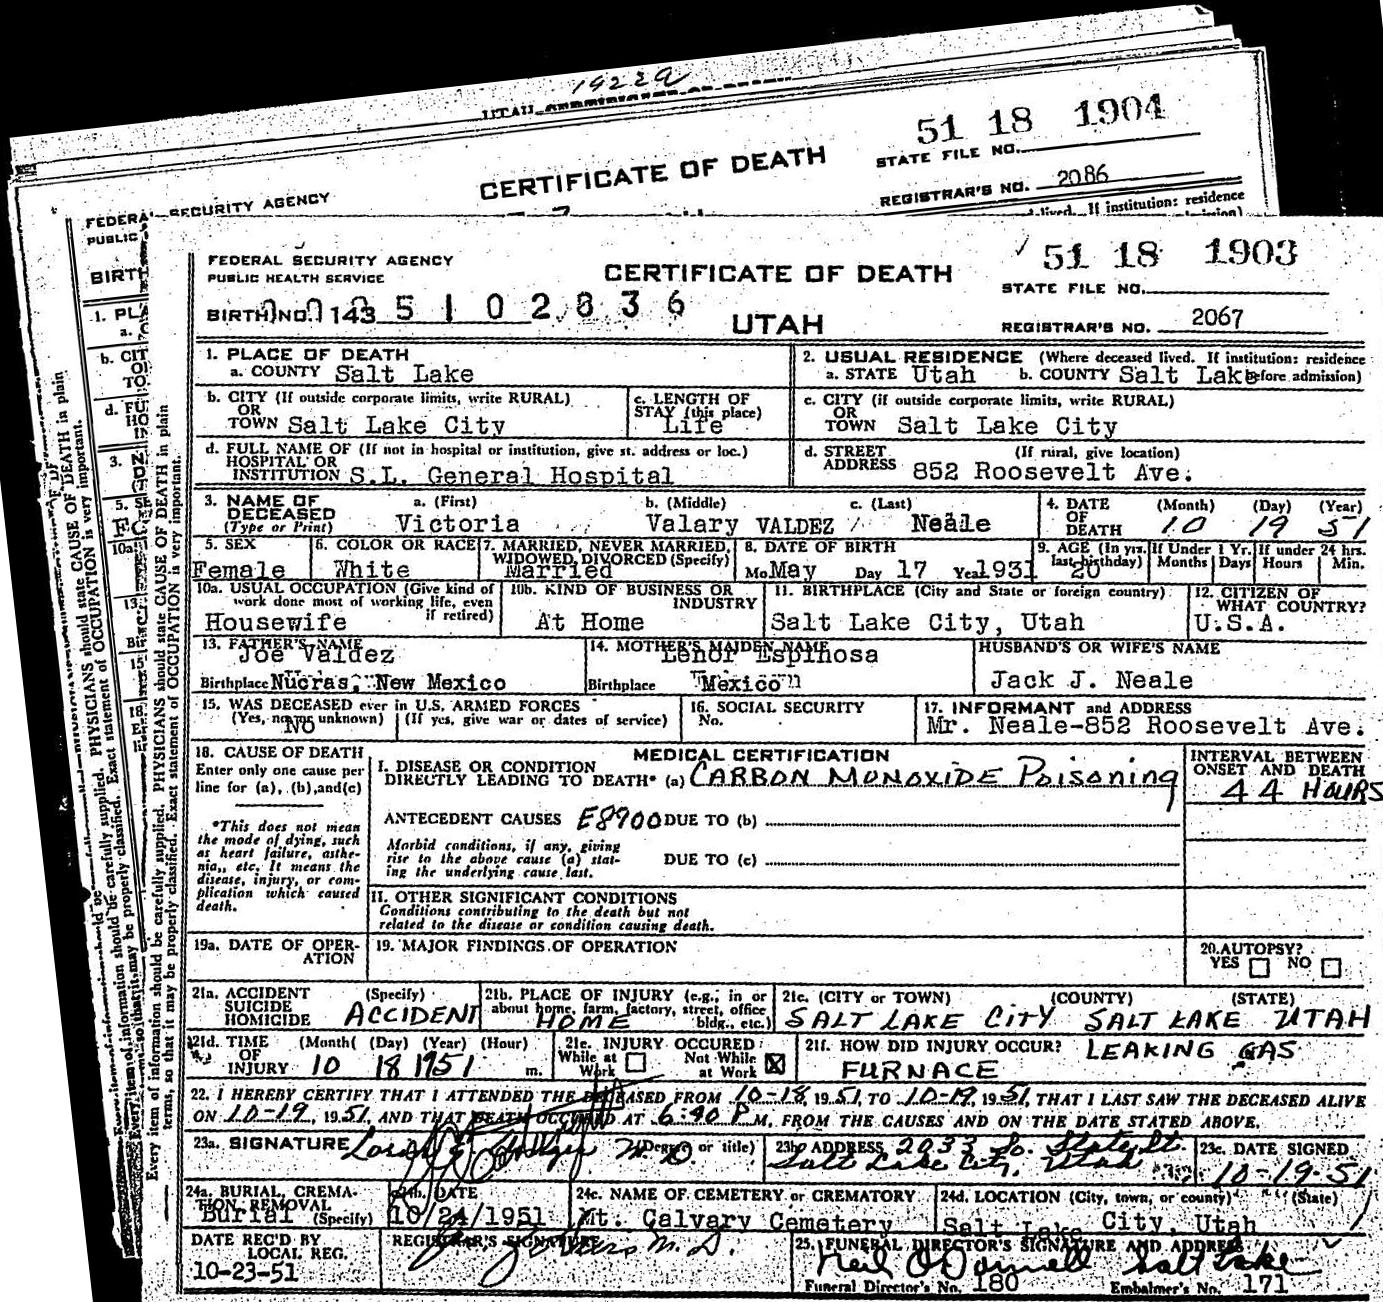 1922a
UTAH CERTIFICATE OF DEATH
51 18 1904
STATE FILE NO.
CERTIFICATE OF DEATH
REGISTRAR'S NO. 2086
FEDERAL SECURITY AGENCY
PUBLIC
lived. If institution: residence
BIRTH
FEDERAL SECURITY AGENCY
PUBLIC HEALTH SERVICE
CERTIFICATE OF DEATH
✓ 51 18 1903
STATE FILE NO.
BIRTH NO. 143 5 1 0 2 8 3 6
UTAH
REGISTRAR'S NO. 2067
1. PLACE OF DEATH
a. COUNTY Salt Lake
2. USUAL RESIDENCE (Where deceased lived. If institution: residence before admission)
a. STATE Utah b. COUNTY Salt Lake
b. CITY (If outside corporate limits, write RURAL)
OR
TOWN Salt Lake City
c. LENGTH OF
STAY (this place)
Life
c. CITY (if outside corporate limits, write RURAL)
OR
TOWN Salt Lake City
d. FULL NAME OF (If not in hospital or institution, give st. address or loc.)
HOSPITAL OR
INSTITUTION S.L. General Hospital
d. STREET (If rural, give location)
ADDRESS 852 Roosevelt Ave.
3. NAME OF DECEASED (Type or Print)
a. (First) b. (Middle) c. (Last)
Victoria Valary VALDEZ / Neale
4. DATE OF DEATH (Month) (Day) (Year)
10 19 51
5. SEX
Female
6. COLOR OR RACE
White
7. MARRIED, NEVER MARRIED,
WIDOWED, DIVORCED (Specify)
Married
8. DATE OF BIRTH
Mo. May Day 17 Year 1931
9. AGE (In yrs. last birthday)
20
If Under 1 Yr.
Months Days
If under 24 hrs.
Hours Min.
10a. USUAL OCCUPATION (Give kind of
work done most of working life, even
if retired)
Housewife
10b. KIND OF BUSINESS OR
INDUSTRY
At Home
11. BIRTHPLACE (City and State or foreign country)
Salt Lake City, Utah
12. CITIZEN OF
WHAT COUNTRY?
U.S.A.
13. FATHER'S NAME
Joe Valdez
Birthplace Nucras, New Mexico
14. MOTHER'S MAIDEN NAME
Lenor Espinosa
Birthplace Mexico
HUSBAND'S OR WIFE'S NAME
Jack J. Neale
15. WAS DECEASED ever in U.S. ARMED FORCES
(Yes, no, or unknown) (If yes, give war or dates of service)
No
16. SOCIAL SECURITY
No.
17. INFORMANT and ADDRESS
Mr. Neale-852 Roosevelt Ave.
18. CAUSE OF DEATH
Enter only one cause per
line for (a), (b), and (c)
*This does not mean
the mode of dying, such
as heart failure, asthe-
nia, etc. It means the
disease, injury, or com-
plication which caused
death.
MEDICAL CERTIFICATION
I. DISEASE OR CONDITION
DIRECTLY LEADING TO DEATH* (a) CARBON MONOXIDE Poisoning
INTERVAL BETWEEN
ONSET AND DEATH
44 HOURS
ANTECEDENT CAUSES E8900 DUE TO (b)
Morbid conditions, if any, giving
rise to the above cause (a) stat-
ing the underlying cause last.
DUE TO (c)
II. OTHER SIGNIFICANT CONDITIONS
Conditions contributing to the death but not
related to the disease or condition causing death.
19a. DATE OF OPER-
ATION
19. MAJOR FINDINGS OF OPERATION
20. AUTOPSY?
YES NO
21a. ACCIDENT (Specify)
SUICIDE
HOMICIDE ACCIDENT
21b. PLACE OF INJURY (e.g., in or
about home, farm, factory, street, office
bldg., etc.)
HOME
21c. (CITY or TOWN) (COUNTY) (STATE)
SALT LAKE CITY SALT LAKE UTAH
21d. TIME (Month) (Day) (Year) (Hour)
OF
INJURY 10 18 1951 m.
21e. INJURY OCCURED
While at Work Not While at Work
21f. HOW DID INJURY OCCUR? LEAKING GAS
FURNACE
22. I HEREBY CERTIFY THAT I ATTENDED THE DECEASED FROM 10-18, 1951, TO 10-19, 1951, THAT I LAST SAW THE DECEASED ALIVE
ON 10-19, 1951, AND THAT DEATH OCCURED AT 6:40 P M, FROM THE CAUSES AND ON THE DATE STATED ABOVE.
23a. SIGNATURE (Degree or title)
M.D.
23b. ADDRESS 2033 So. State St.
Salt Lake City, Utah
23c. DATE SIGNED
10-19-51
24a. BURIAL, CREMA-
TION, REMOVAL
Burial (Specify)
24b. DATE
10/24/1951
24c. NAME OF CEMETERY or CREMATORY
Mt. Calvary Cemetery
24d. LOCATION (City, town, or county) (State)
Salt Lake City, Utah
DATE REC'D BY
LOCAL REG.
10-23-51
REGISTRAR'S SIGNATURE
M.D.
25. FUNERAL DIRECTOR'S SIGNATURE AND ADDRESS
Neil O'Donnell Salt Lake
Funeral Director's No. 180 Embalmer's No. 171
Every item of information should be carefully supplied. PHYSICIANS should state CAUSE OF DEATH in plain
terms, so that it may be properly classified. Exact statement of OCCUPATION is very important.